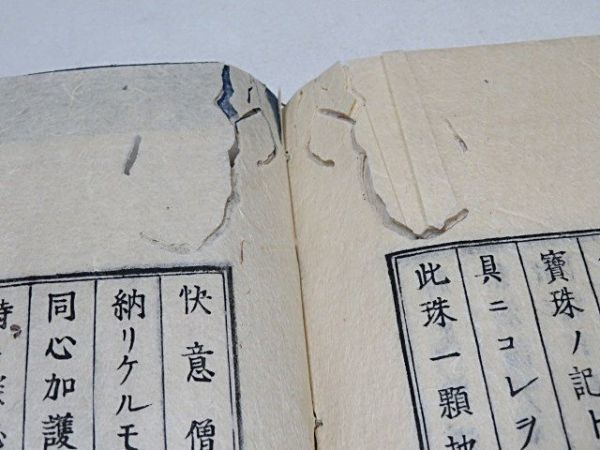 寶珠ノ記ト
具ニコレヲ
此珠一顆
快意僧
納リケルモ
同心加護
時